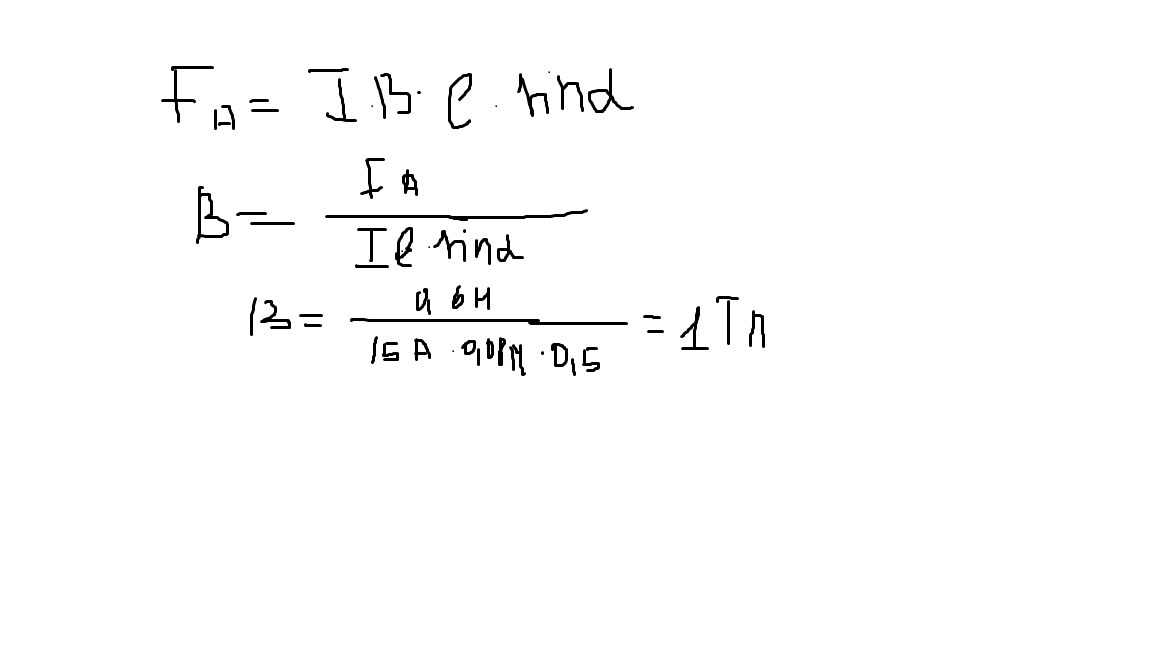 F_A = I·B·ℓ·sinα
B = F_A / Iℓ·sinα
B = 0,6Н / 15А·0,08м·0,5 = 1Тл